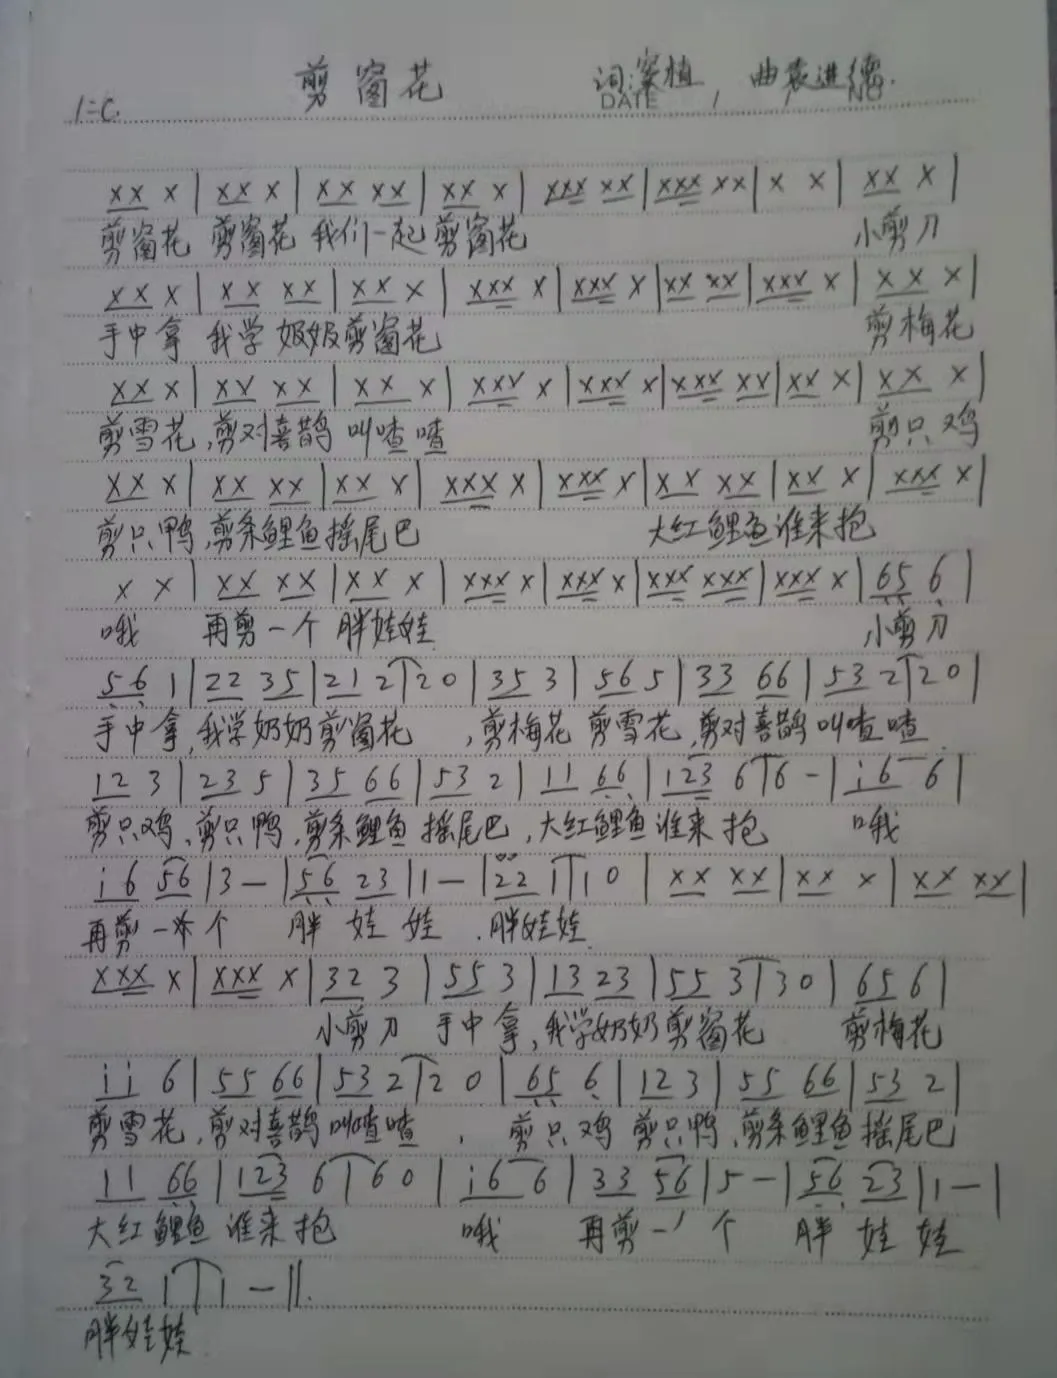 剪窗花 词:案植 曲袁进德.
DATE NO
1=C.
xx x | xx x | xx xx | xx x | xxx xx | xxx xx | x x | xx x |
剪窗花 剪窗花 我们一起 剪窗花 小剪刀
xx x | xx xx | xx x | xxx x | xxx x | xx xx | xxx x | xx x |
手中拿 我学奶奶剪窗花 剪梅花
xx x | xx xx | xx x | xxx x | xxx x | xxx xx | xx x | xx x |
剪雪花,剪对喜鹊 叫喳喳 剪只鸡
xx x | xx xx | xx x | xxx x | xxx x | xx xx | xx x | xxx x |
剪只鸭,剪条鲤鱼摇尾巴 大红鲤鱼谁来抱
x x | xx xx | xx x | xxx x | xxx x | xxx xxx | xxx x | 65 6 |
哦 再剪一个 胖娃娃 小剪刀
56 1 | 22 35 | 21 2 | 2 0 | 35 3 | 56 5 | 33 66 | 53 2 | 2 0 |
手中拿,我学奶奶剪窗花 ,剪梅花 剪雪花,剪对喜鹊 叫喳喳
12 3 | 23 5 | 35 66 | 53 2 | 11 66 | 123 6 | 6 - | i6 6 |
剪只鸡,剪只鸭,剪条鲤鱼 摇尾巴,大红鲤鱼 谁来 抱 哦
i6 56 | 3 - | 56 23 | 1 - | 22 1 | 1 0 | xx xx | xx x | xx xx |
再剪一个 胖 娃 娃 ,胖娃娃
xxx x | xxx x | 32 3 | 55 3 | 13 23 | 55 3 | 3 0 | 65 6 |
小剪刀 手中拿,我学奶奶剪窗花 剪梅花
ii 6 | 55 66 | 53 2 | 2 0 | 65 6 | 12 3 | 55 66 | 53 2 |
剪雪花,剪对喜鹊 叫喳喳 , 剪只鸡 剪只鸭,剪条鲤鱼摇尾巴
11 66 | 123 6 | 6 0 | i6 6 | 33 56 | 5 - | 56 23 | 1 - |
大红鲤鱼 谁来抱 哦 再剪一个 胖 娃 娃
32 1 | 1 - ‖.
胖娃娃